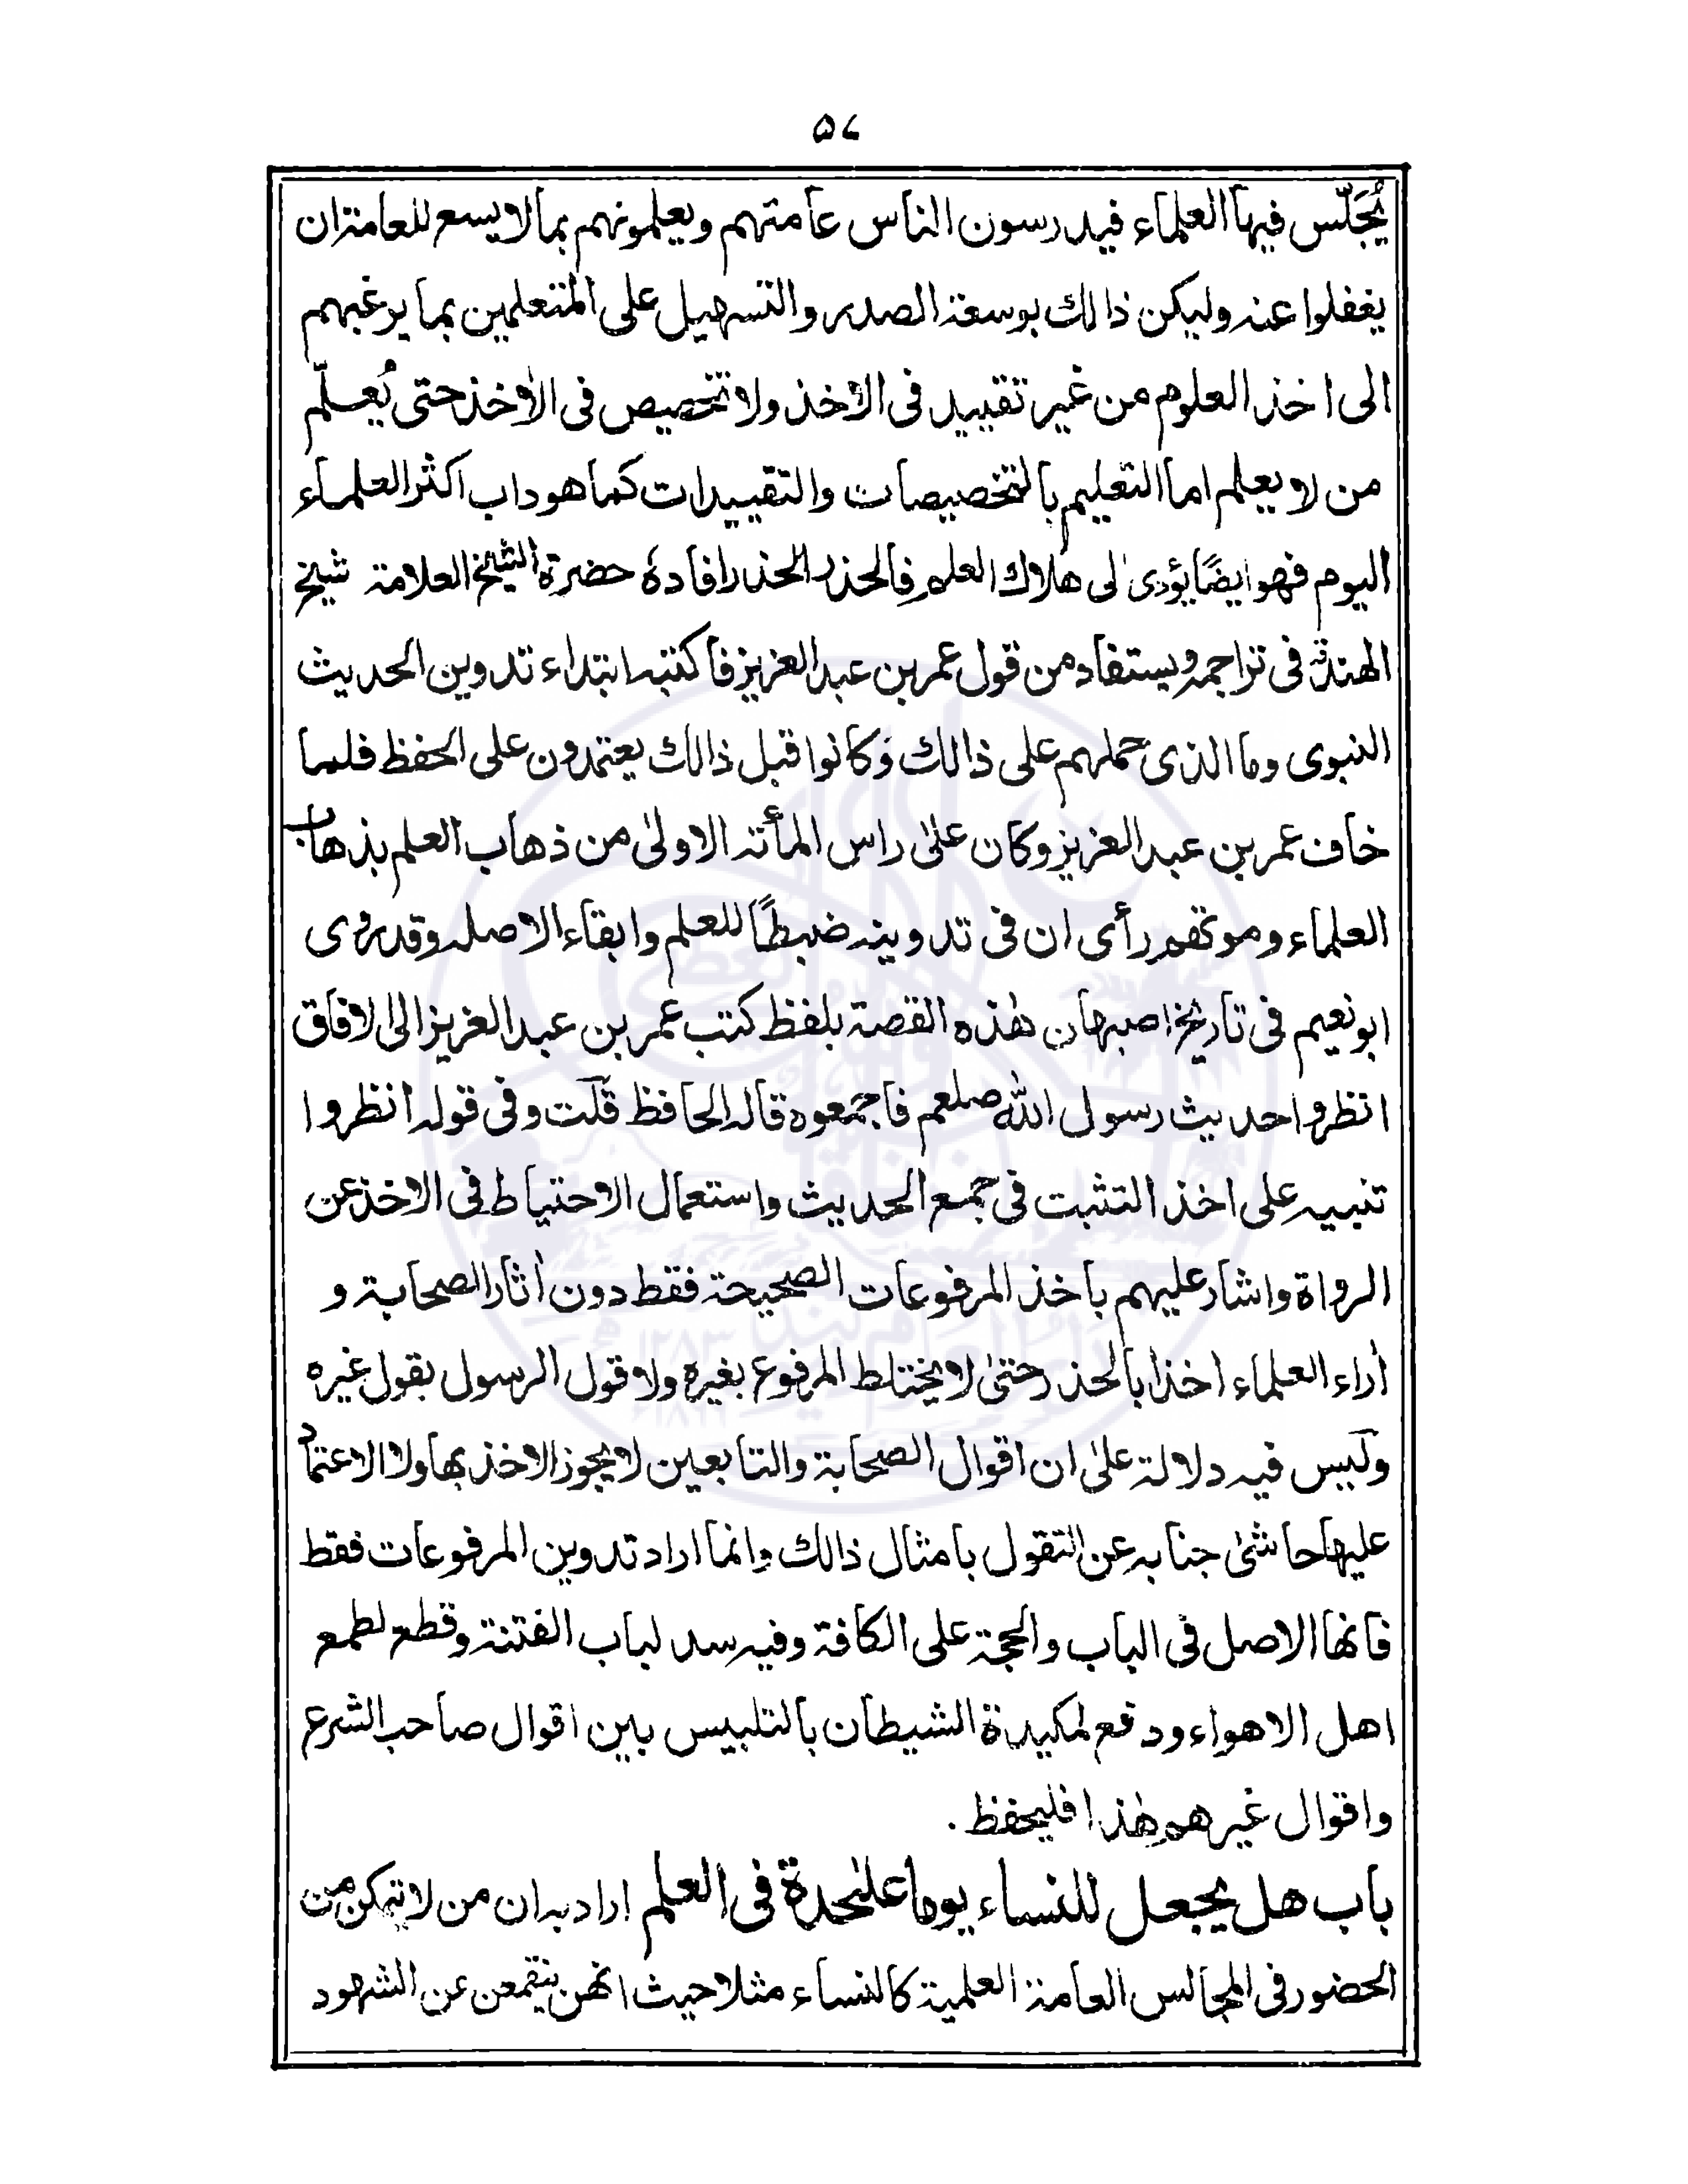 ۵۷
يُجَلّس فيها العلماء فيدرسون الناس عامتهم ويعلمونهم بما لا يسع للعامة ان
يغفلوا عنه وليكن ذالك بوسعة الصدر والتسهيل على المتعلمين بما يرغبهم
الى اخذ العلوم من غير تقييد فى الاخذ ولا تخصيص فى الأخذ حتى يُعلّم
من لا يعلم اما التعليم بالتخصيصات والتقييدات كما هو داب اكثر العلماء
اليوم فهو ايضًا يؤدى الى هلاك العلم فالحذر الحذر افاده حضرة الشيخ العلامة شيخ
الهندؒ فى تراجمه ويستفاد من قول عمر بن عبد العزيز فاكتبه ابتداء تدوين الحديث
النبوى وما الذى حملهم على ذالك وكانوا قبل ذالك يعتمدون على الحفظ فلما
خاف عمر بن عبد العزيز وكان علىٰ راس المأتة الاولىٰ من ذهاب العلم بذهاب
العلماء وموتهم رأى ان فى تدوينه ضبطًا للعلم وابقاء الاصله وقد روى
ابو نعيم فى تاريخ اصبهان هٰذه القصة بلفظ كتب عمر بن عبد العزيز الى الافاق
انظروا حديث رسول اللہ صلعم فاجمعوه قاله الحافظ قلت وفى قوله انظروا
تنبيه على اخذ التثبت فى جمع الحديث واستعمال الاحتياط فى الاخذ عن
الرواة واشار عليهم باخذ المرفوعات الصحيحة فقط دون اٰثار الصحابة و
اٰراء العلماء اخذا بالحذر حتىٰ لا يختلط المرفوع بغيره ولا قول الرسول بقول غيره
وليس فيه دلالة علىٰ ان اقوال الصحابة والتابعين لا يجوز الاخذ بها ولا الاعتماد
عليها حاشىٰ جنابه عن التقول بامثال ذالك وانما اراد تدوين المرفوعات فقط
فانها الاصل فى الباب والحجة على الكافة وفيه سد لباب الفتنة وقطع لطمع
اهل الاهواء ودفع لمكيدة الشيطان بالتلبيس بين اقوال صاحب الشرع
واقوال غيرهم هٰذا فليحفظ.
باب هل يجعل للنساء يوما علىٰحدة فى العلم اراد به ان من لا تمكن من
الحضور فى المجالس العامة العلمية كالنساء مثلا حيث انهن ينقمعن عن الشهود